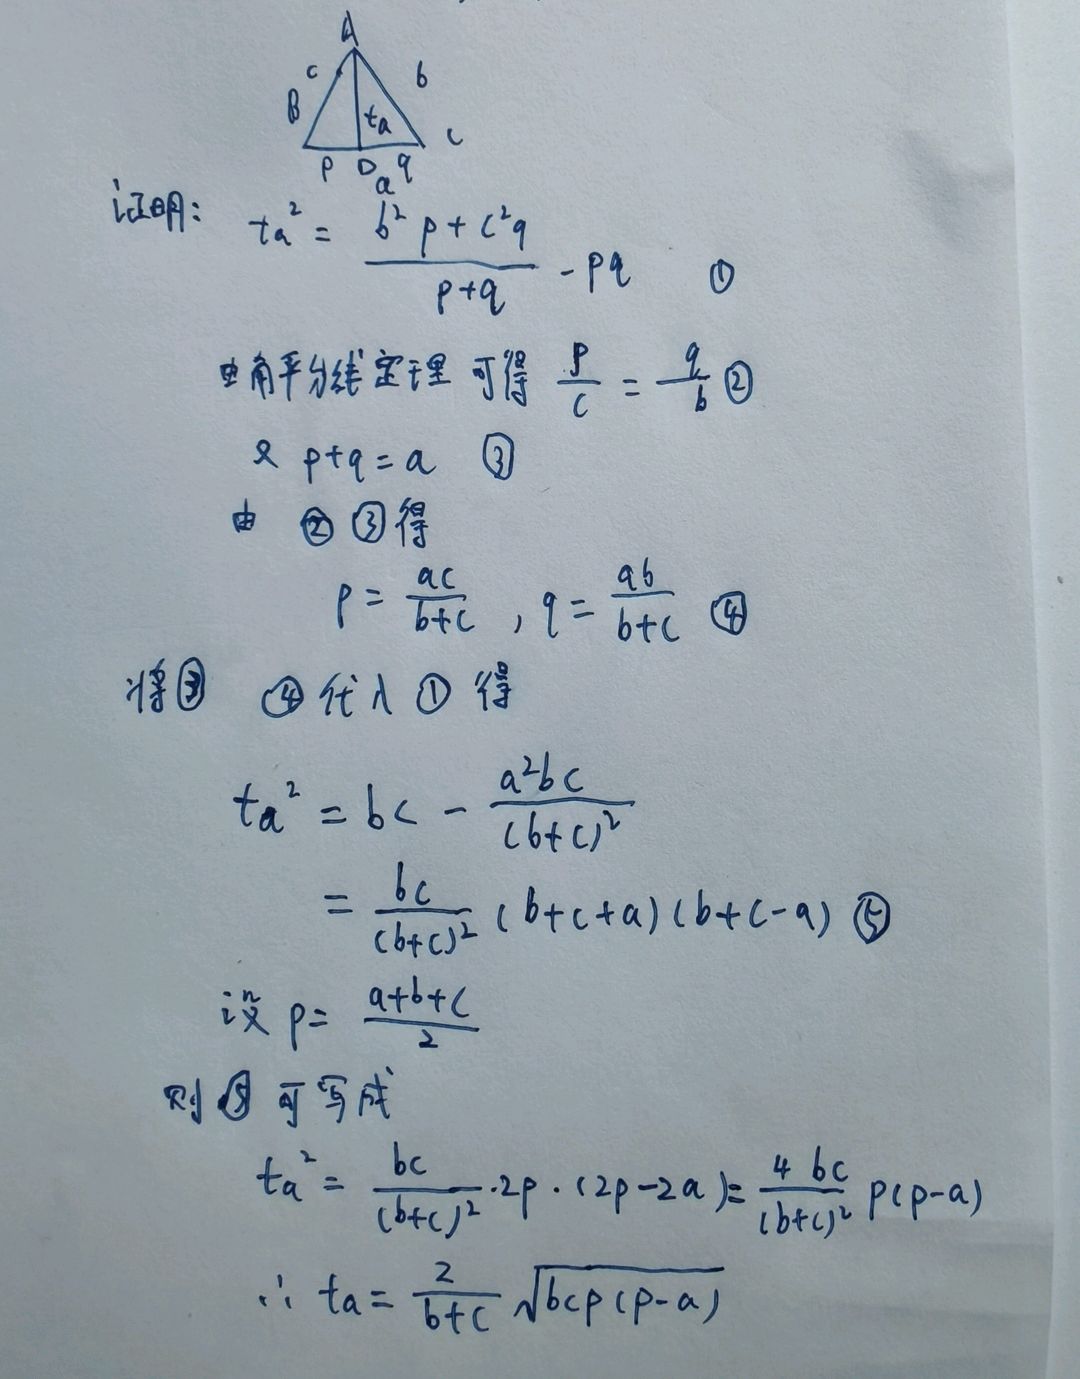 A
c b
B ta C
p D q
a
证明: ta² = (b²p + c²q)/(p+q) - pq ①
由角平分线定理 可得 p/c = q/b ②
又 p+q=a ③
由 ② ③ 得
p = ac/(b+c) , q = ab/(b+c) ④
将③ ④ 代入 ① 得
ta² = bc - a²bc/(b+c)²
= bc/(b+c)² (b+c+a)(b+c-a) ⑤
设 p= (a+b+c)/2
则 ⑤ 可写成
ta² = bc/(b+c)² ·2p·(2p-2a)= 4bc/(b+c)² p(p-a)
∴ ta = 2/(b+c) √(bcp(p-a))